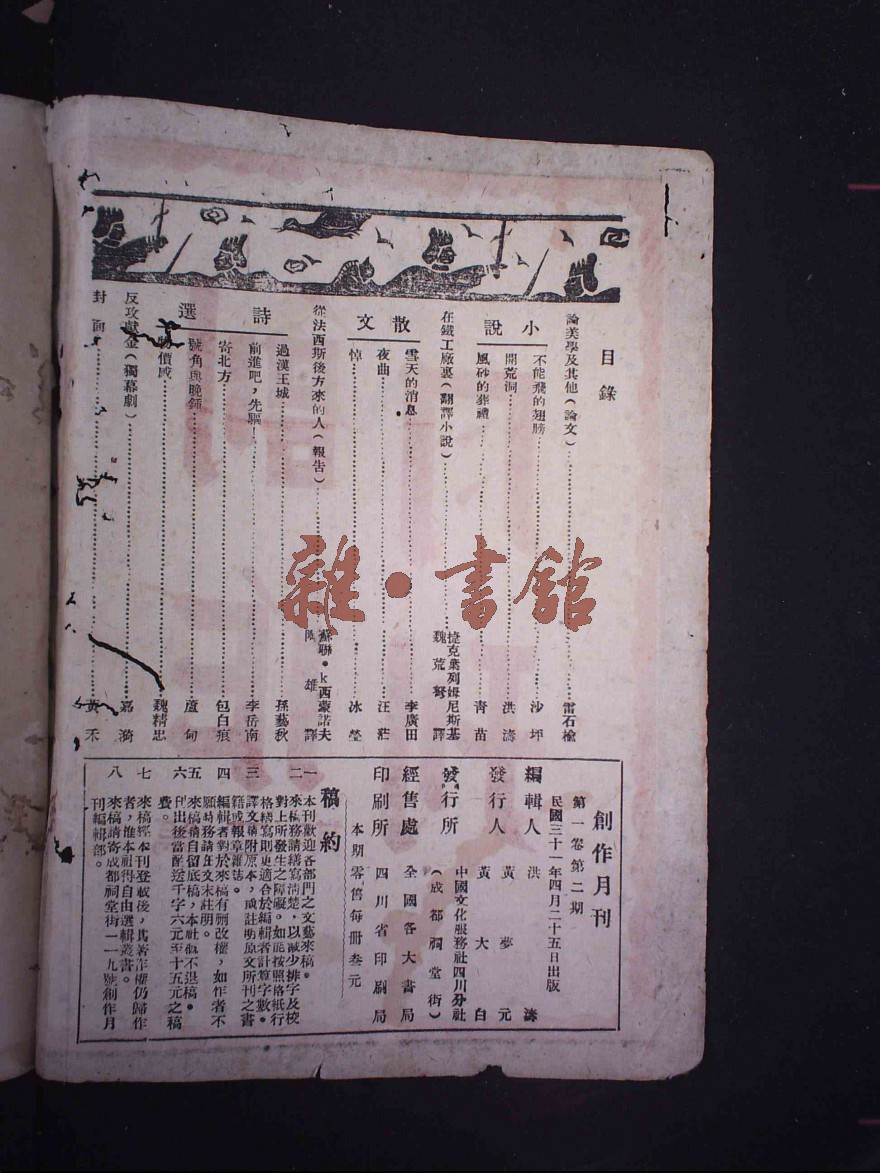 目錄
論美學及其他(論文)……雷石榆
小說
不能飛的翅膀……沙坪
開荒洞……洪濤
風砂的葬禮……青苗
在鐵工廠裏(翻譯小說)……捷克葉列姆尼斯基
魏荒弩譯
散文
雪天的消息……李廣田
夜曲……汪莊
悼……冰瑩
從法西斯後方來的人(報告)……蘇聯•k西蒙諾夫
雄譯
詩選
過漢王城……孫藝秋
前進吧,先驅……李岳南
寄北方……包白痕
號角與晚鐘……蘆甸
物價感……魏精忠
反攻獻金(獨幕劇)……嘉漪
封面……黃禾
創作月刊
第一卷第二期
民國三十一年四月二十五日出版
編輯人 洪濤
黃夢元
發行人 黃大白
發行所 中國文化服務社四川分社
(成都祠堂街)
經售處 全國各大書局
印刷所 四川省印刷局
本期零售每冊叁元
稿約
一 本刊歡迎各部門之文藝來稿。
二 來稿務請繕寫清楚,以減少排字及校
對上所發生之障礙。如能按照格紙行
格繕寫則更適合於編輯者計算字數。
三 譯文請附原本,或註明原文所刊之書
籍或報章雜誌。
四 編輯者對於來稿有刪改權,如作者不
願時務請在文末註明。
五 來稿請自留底稿,本社概不退稿。
六 刊出後當酌送千字六元至十五元之稿
費。
七 來稿經本刊登載後,其著作權仍歸作
者,惟本社得自由選輯叢書。
八 來稿請寄成都祠堂街一一九號創作月
刊編輯部。
雜•書館